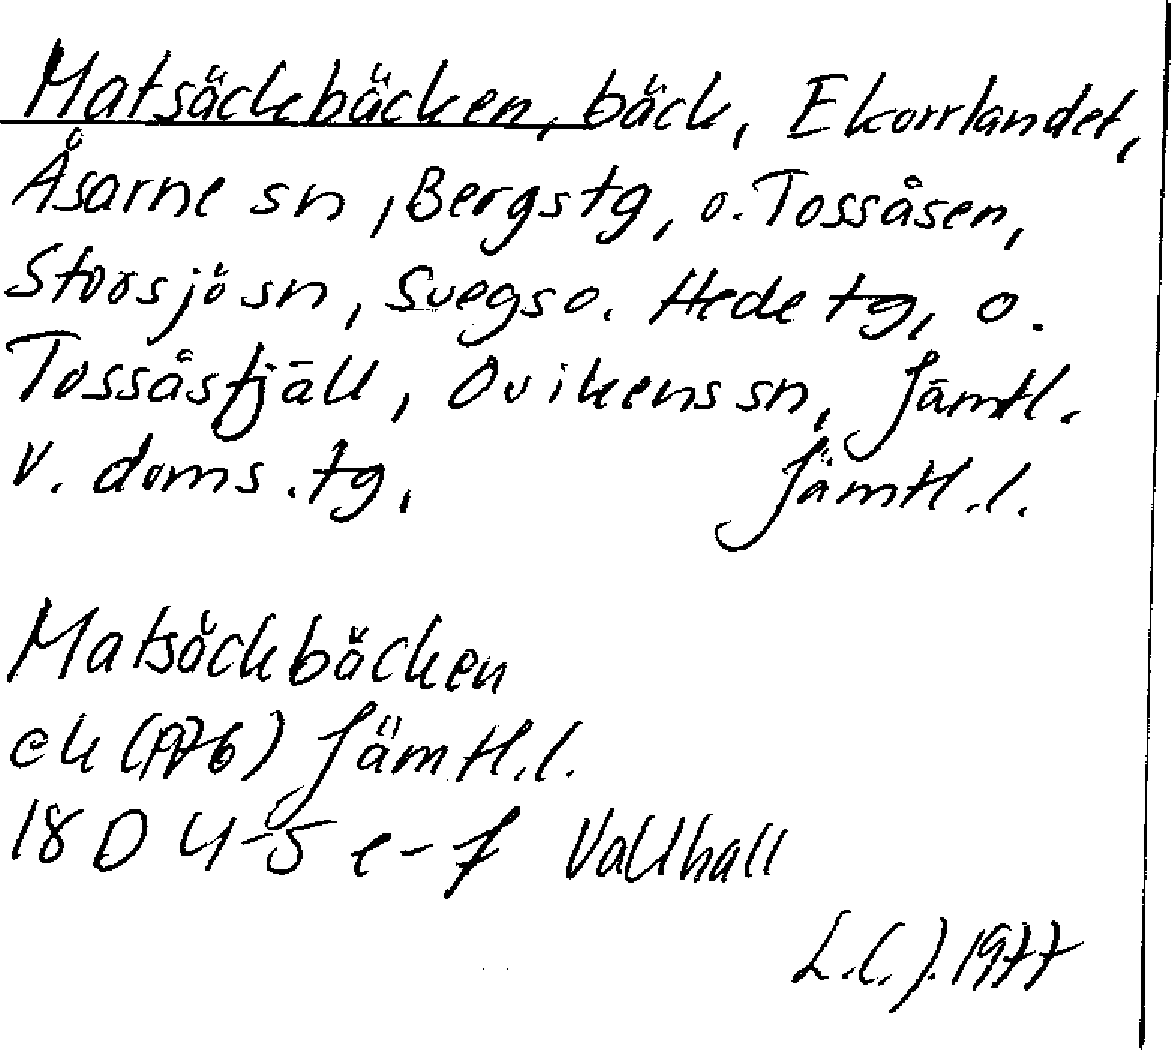 Matsäckbäcken, bäck, Ekorrlandet,
Åsarne sn, Bergs tg, o. Tossåsen,
Storsjö sn, Svegs o. Hede tg, o.
Tossåsfjäll, Ovikens sn, Jämtl.
V. doms. tg. Jämtl. l.
Matsäckbäcken
ek (1976) Jämtl. l.
18 D 4-5 e-f Vallhall
L.C.J. 1977